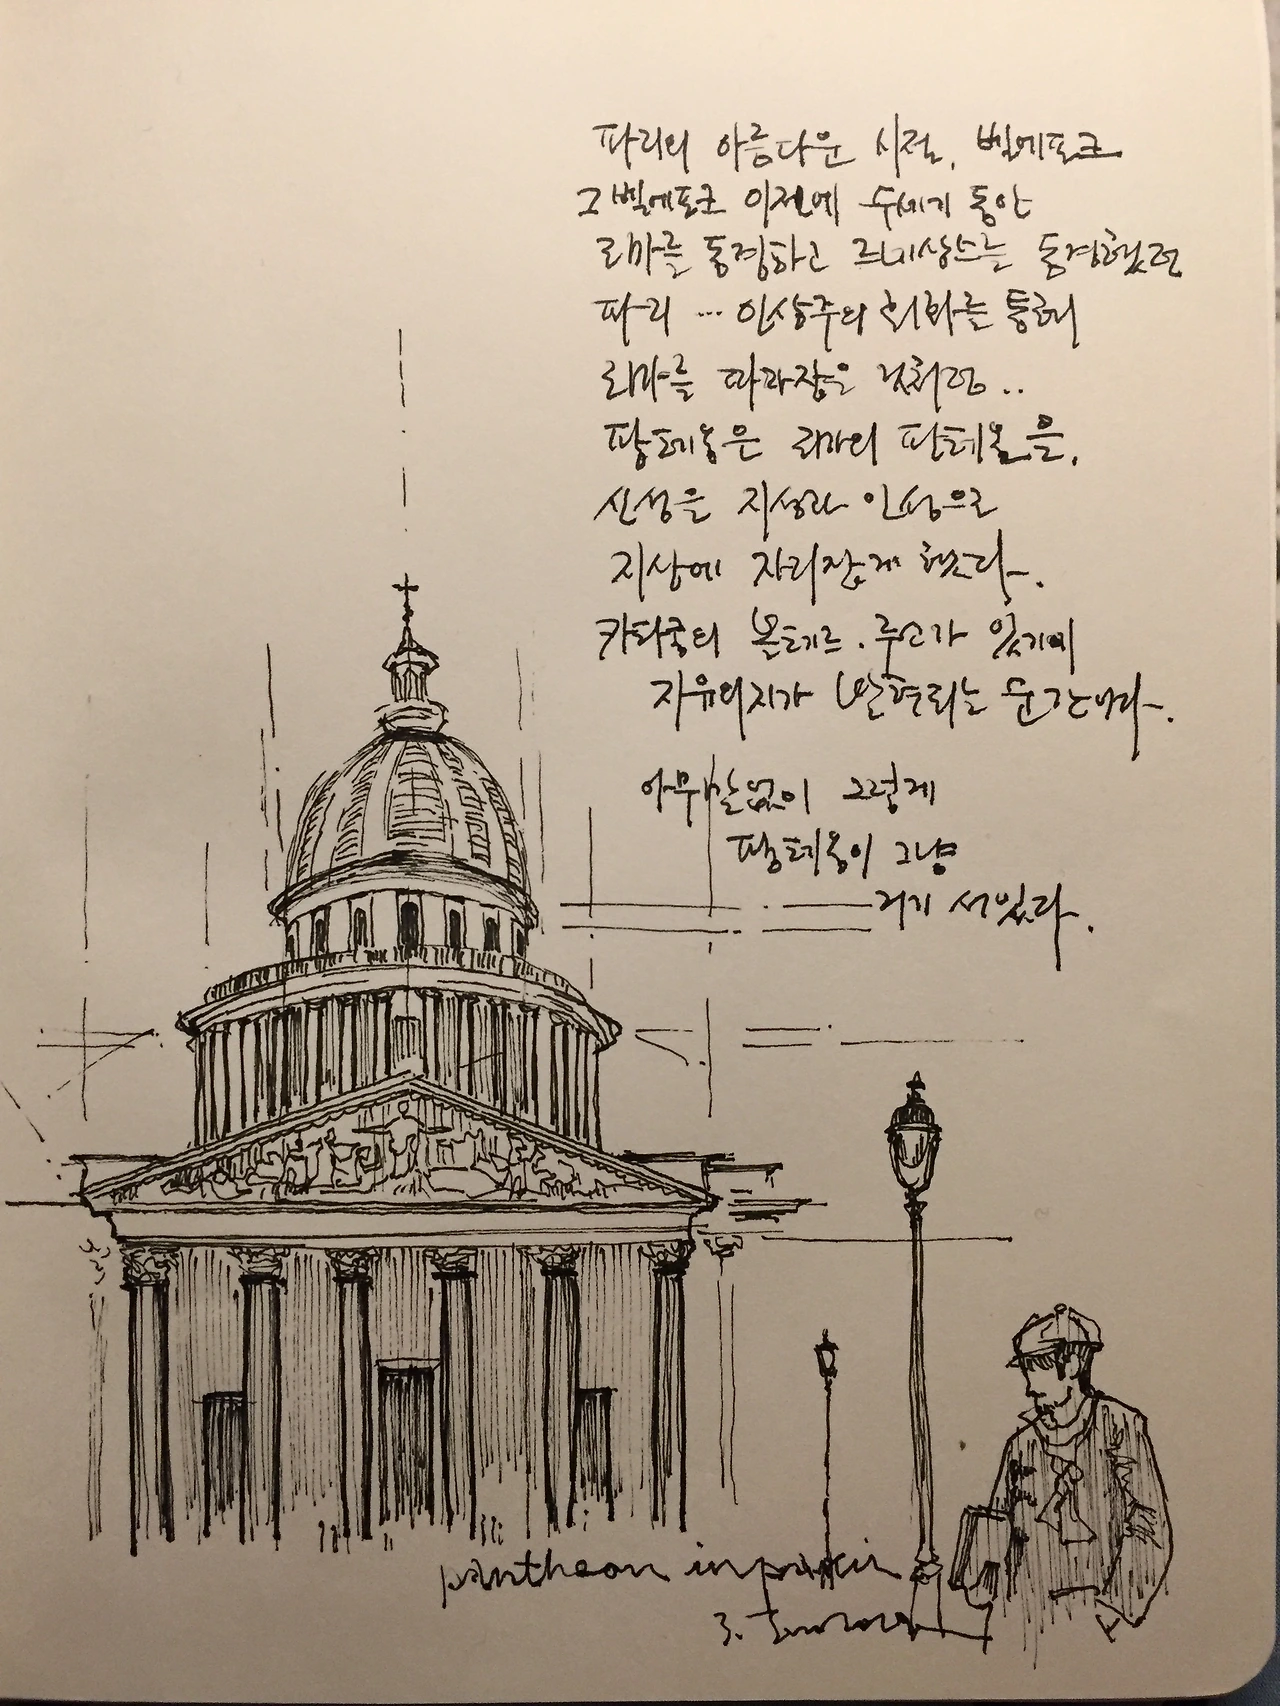 파리의 아름다운 시절, 벨에포크
그 벨에포크 이전에 두세기 동안
로마를 동경하고 르네상스를 동경했던
파리 ... 인상주의 회화를 통해
로마를 따라잡은 것처럼..
팡테옹은 로마의 판테온을,
신성을 지성과 인성으로
지상에 자리잡게 했다.
카타콤의 볼테르, 루소가 있기에
자유의지가 발현되는 순간이다.
아무 말없이 그렇게
팡테옹이 그냥
거기 서있다.
pantheon in paris
3.